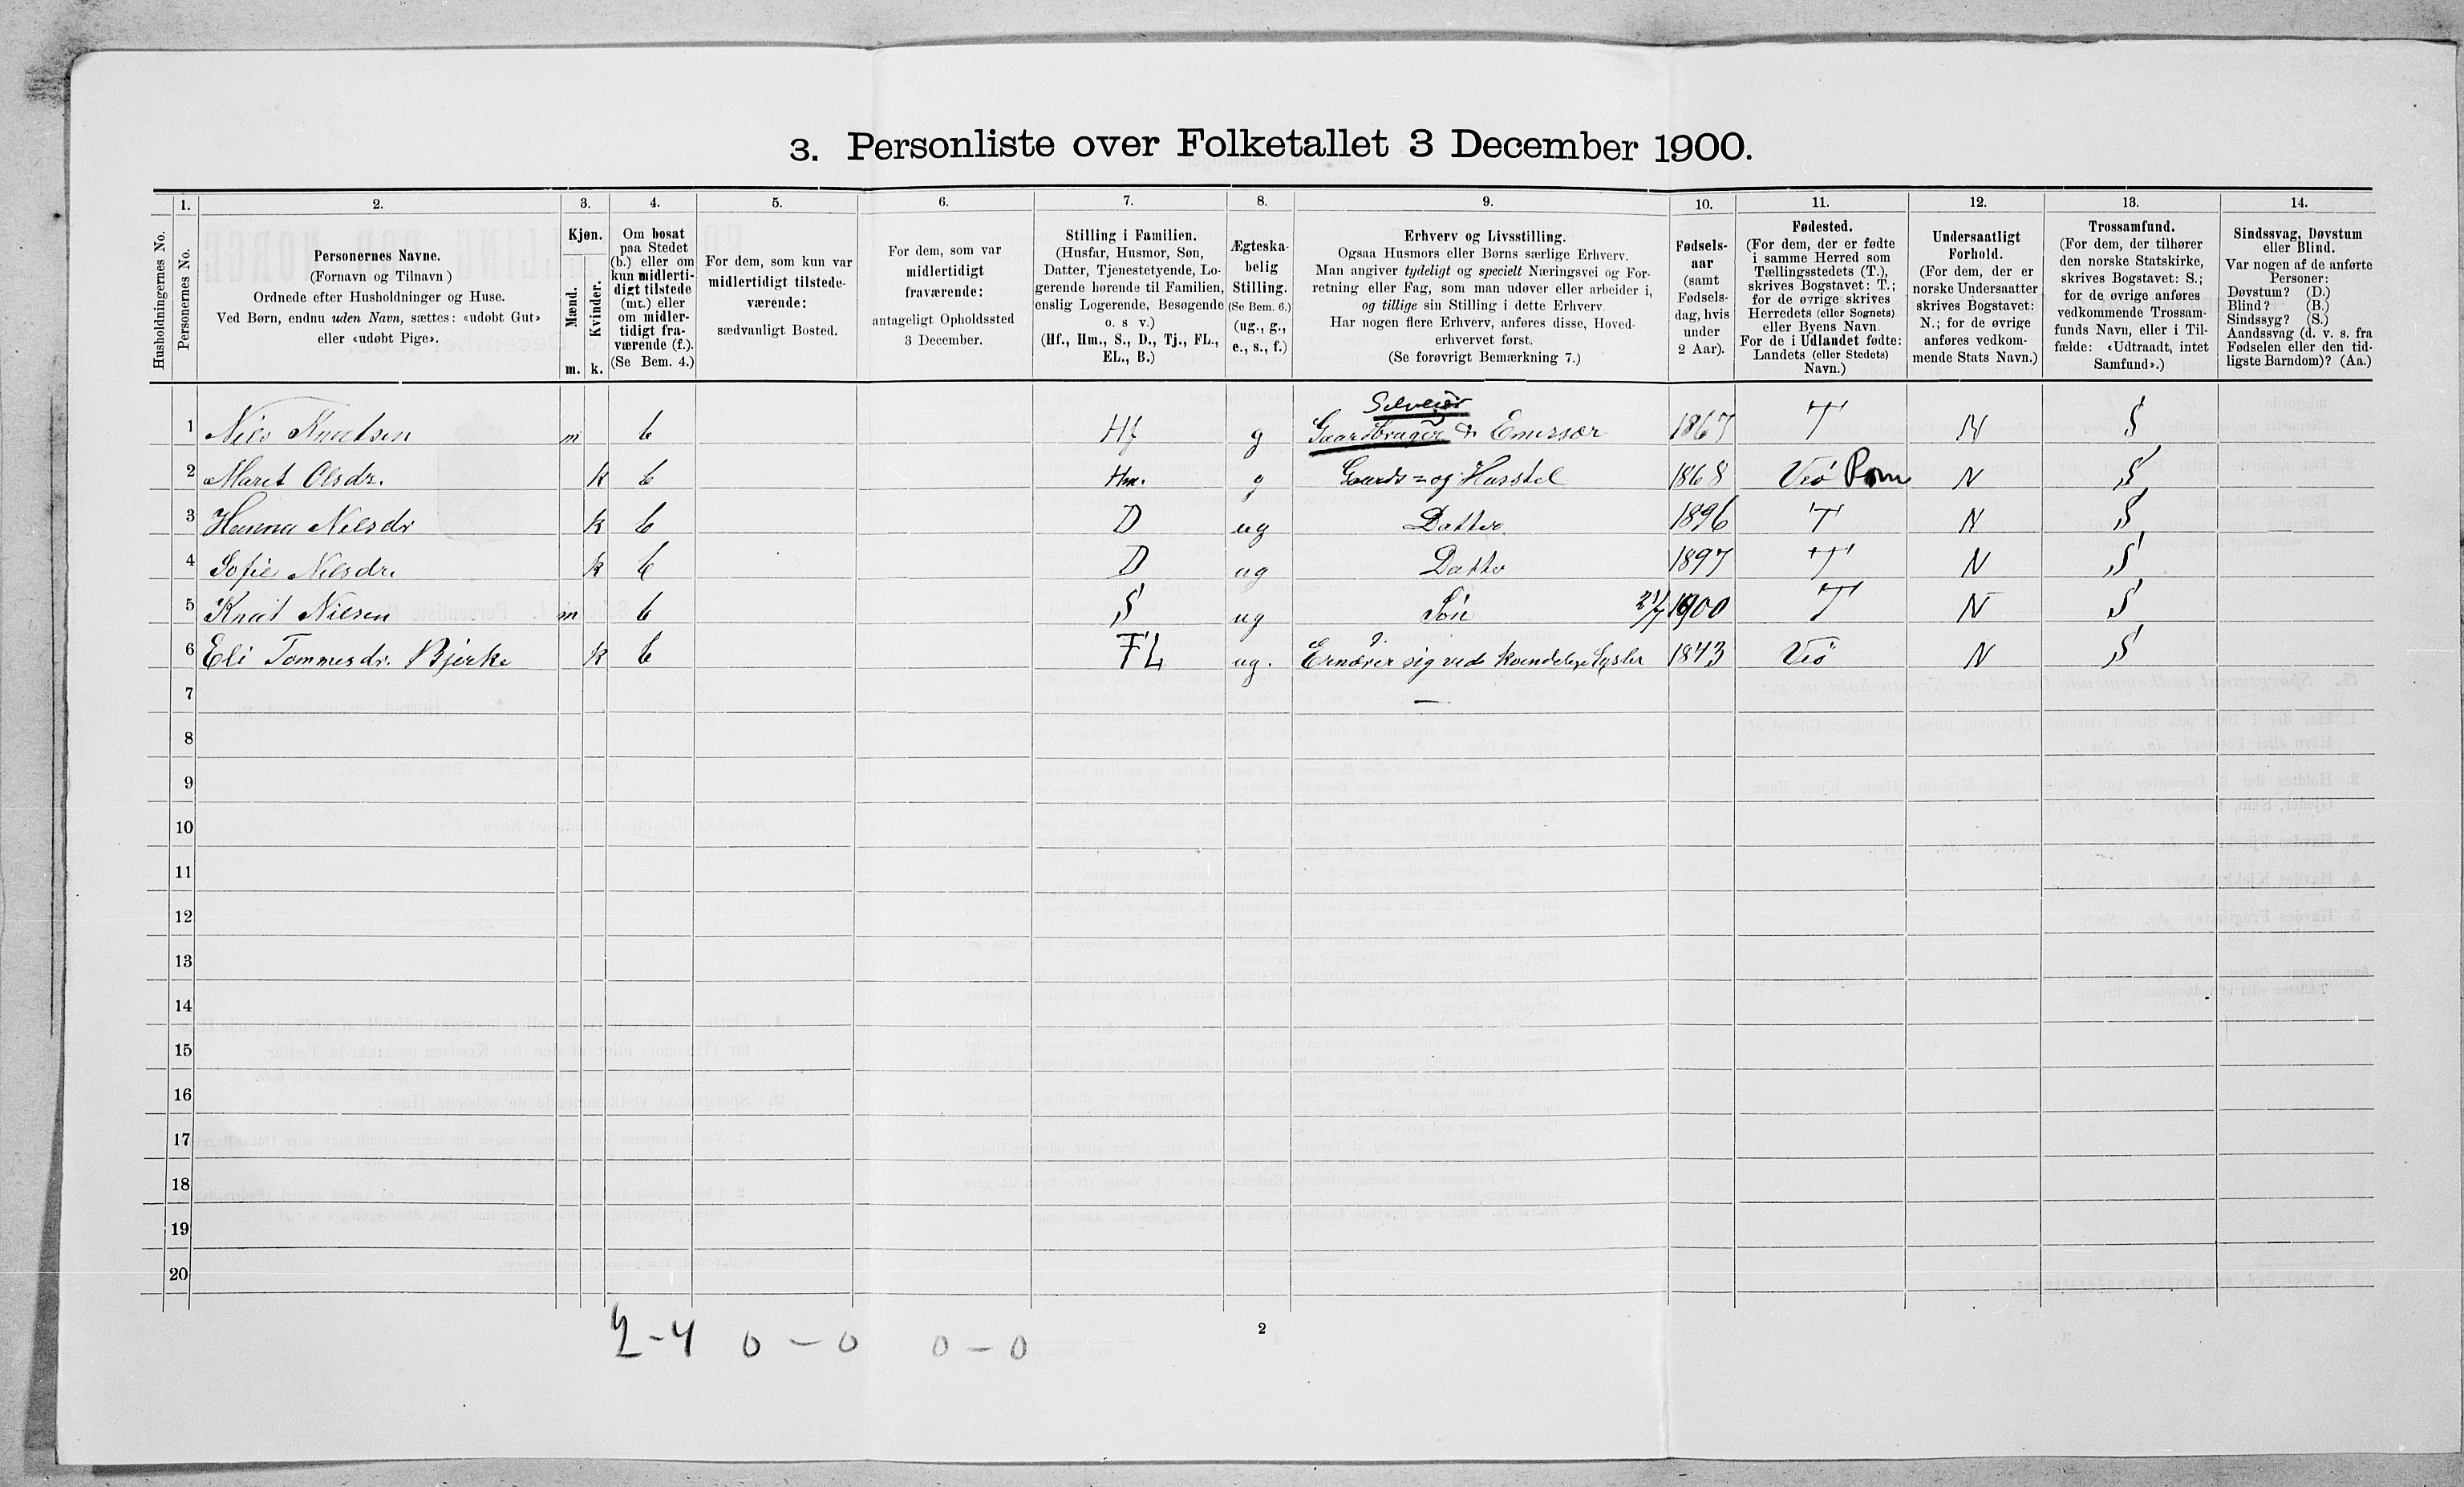 3. Personliste over Folketallet 3 December 1900.
1. 2. 3. 4. 5. 6. 7. 8. 9. 10. 11. 12. 13. 14.
Husholdningernes No.
Personernes No.
Personernes Navne.
(Fornavn og Tilnavn)
Ordnede efter Husholdninger og Huse.
Ved Børn, endnu uden Navn, sættes: «udøbt Gut»
eller «udøbt Pige».
Kjøn.
Mænd.
Kvinder.
m. k.
Om bosat
paa Stedet
(b.) eller om
kun midlerti-
digt tilstede
(mt.) eller
om midler-
tidigt fra-
værende (f.).
(Se Bem. 4.)
For dem, som kun var
midlertidigt tilstede-
værende:
sædvanligt Bosted.
For dem, som var
midlertidigt
fraværende:
antageligt Opholdssted
3 December.
Stilling i Familien.
(Husfar, Husmor, Søn,
Datter, Tjenestetyende, Lo-
gerende hørende til Familien,
enslig Logerende, Besøgende
o. s v.)
(Hf., Hm., S., D., Tj., FL.,
EL., B.)
Ægteska-
belig
Stilling.
(Se Bem. 6.)
(ug., g.,
e., s., f.)
Erhverv og Livsstilling.
Ogsaa Husmors eller Børns særlige Erhverv.
Man angiver tydeligt og specielt Næringsvei og For-
retning eller Fag, som man udøver eller arbeider i,
og tillige sin Stilling i dette Erhverv.
Har nogen flere Erhverv, anføres disse, Hoved-
erhvervet først.
(Se forøvrigt Bemærkning 7.)
Fødsels-
aar
(samt
Fødsels-
dag, hvis
under
2 Aar).
Fødested.
(For dem, der er fødte
i samme Herred som
Tællingsstedets (T.),
skrives Bogstavet: T.;
for de øvrige skrives
Herredets (eller Sognets)
eller Byens Navn.
For de i Udlandet fødte:
Landets (eller Stedets)
Navn.)
Undersaatligt
Forhold.
(For dem, der er
norske Undersaatter
skrives Bogstavet:
N.; for de øvrige
anføres vedkom-
mende Stats Navn.)
Trossamfund.
(For dem, der tilhører
den norske Statskirke,
skrives Bogstavet: S.;
for de øvrige anføres
vedkommende Trossam-
funds Navn, eller i Til-
fælde: «Udtraadt, intet
Samfund».)
Sindssvag, Døvstum
eller Blind.
Var nogen af de anførte
Personer:
Døvstum? (D.)
Blind? (B.)
Sindssyg? (S.)
Aandssvag (d. v. s. fra
Fødselen eller den tid-
ligste Barndom)? (Aa.)
Selveier
1 Nils Knutsen m b Hf g Gaardbruger & 1867 T N S
2 Marit Olsdr. k b Hm. g Gaards- og Husstel 1868 Veö Rom N S
3 Hanna Nilsdr k b D ug Datter 1896 T N S
4 Sofie Nilsdr. k b D ug Datter 1897 T N S
5 Knut Nilsen m b S ug Sön 21/7 1900 T N S
6 Eli Tommesdr. Bjerke k b FL ug. Ernærer sig ved kvindelige Sysler 1843 Veö N S
7
8
9
10
11
12
13
14
15
16
17
18
19
20
2-4 0-0 0-0
2